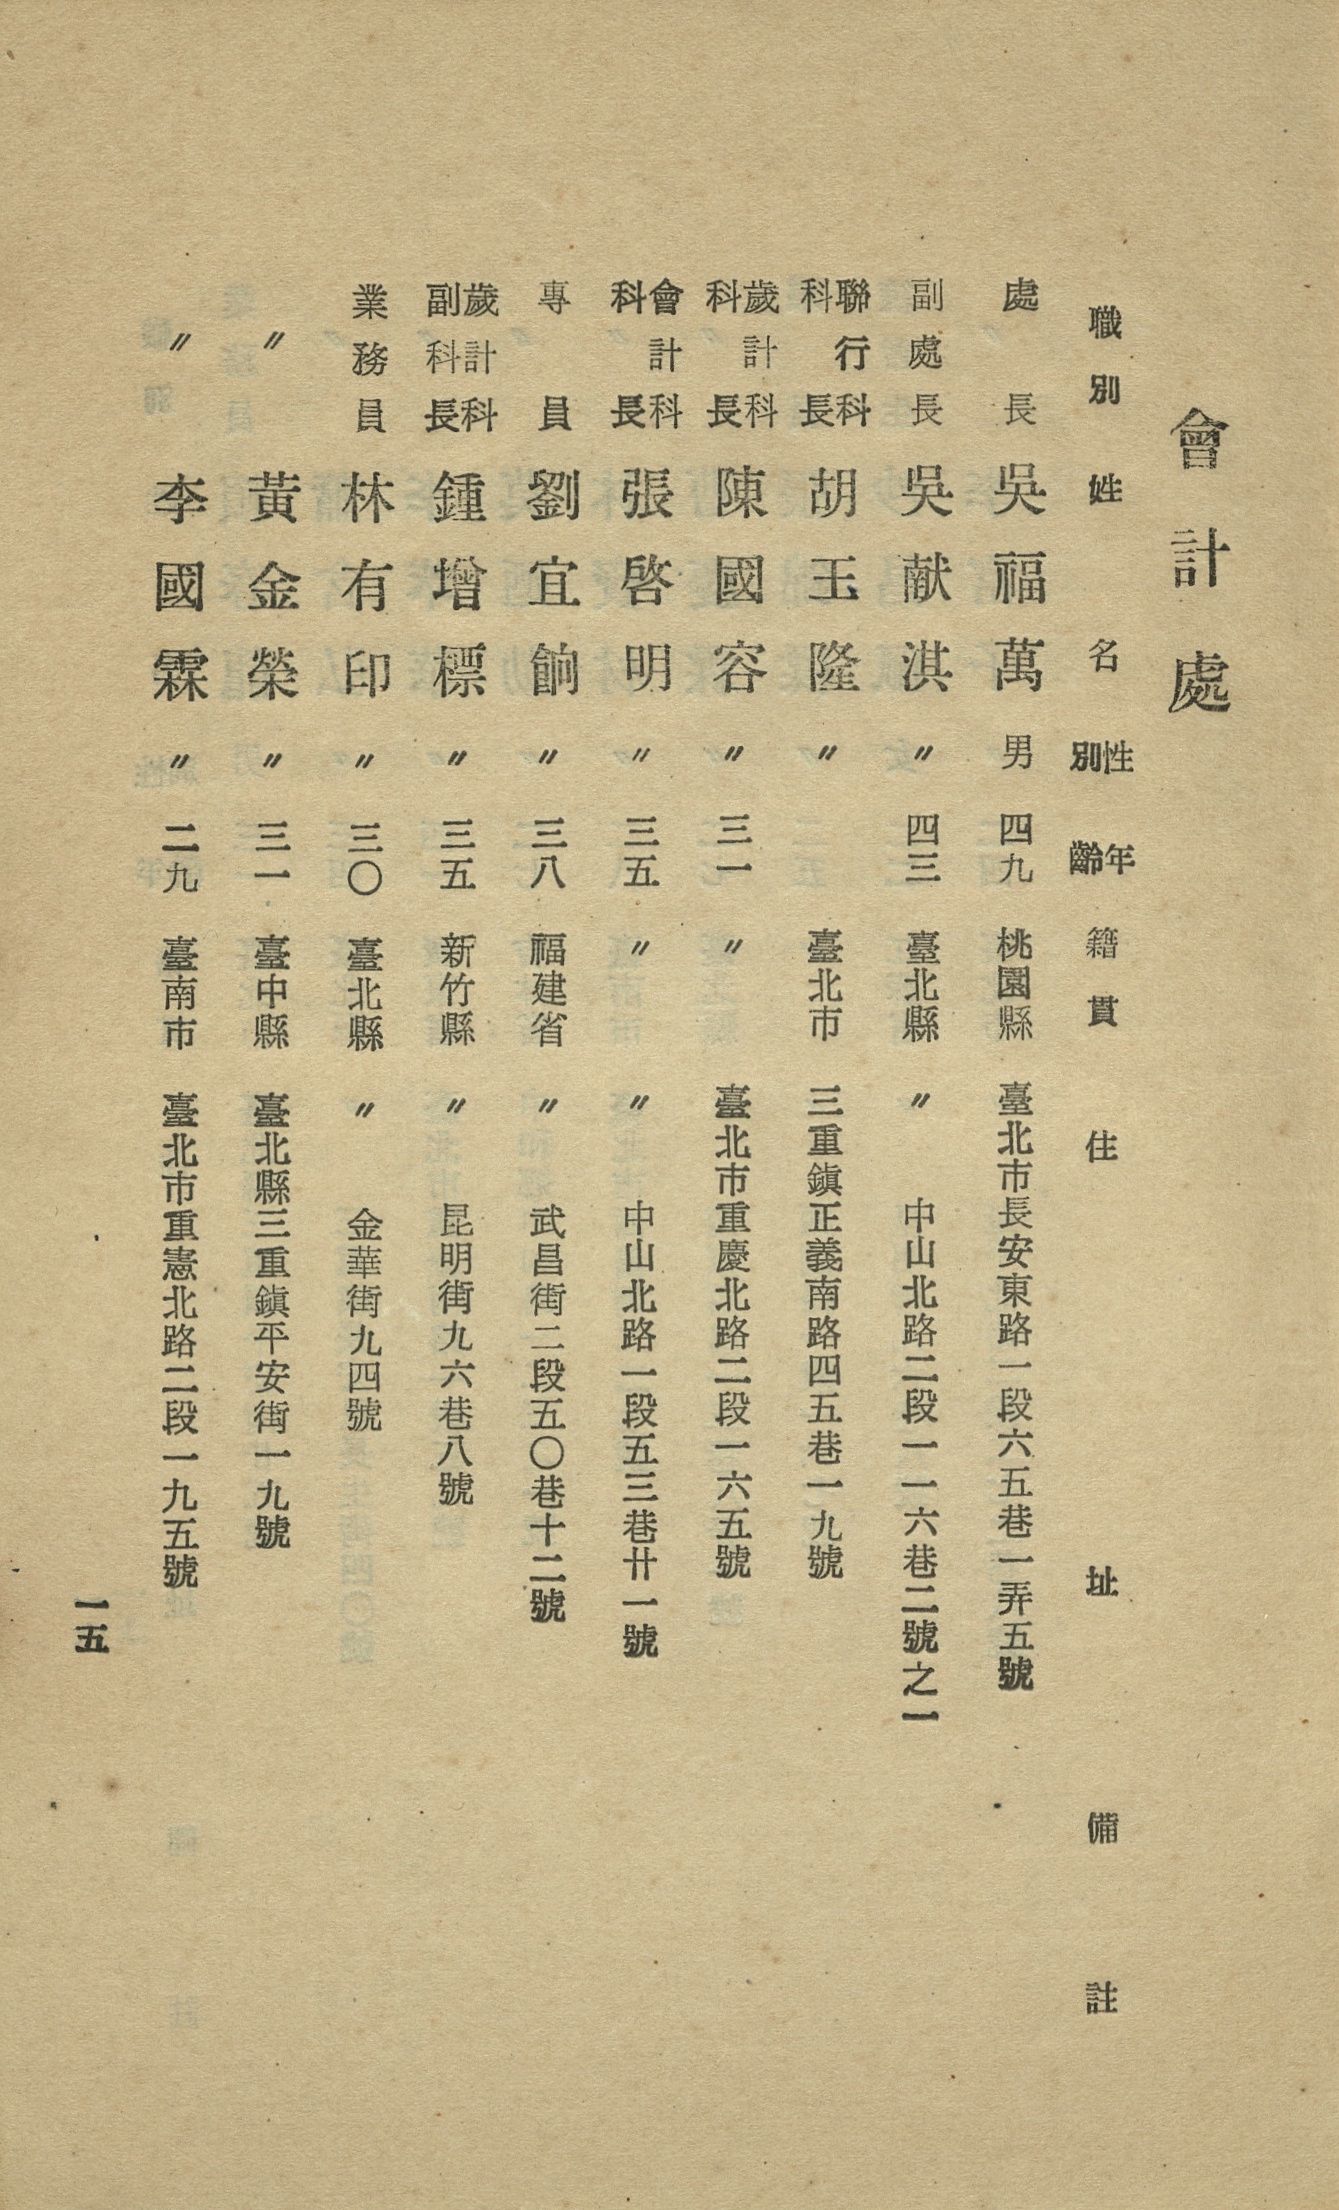 會計處
職別 姓名 性別 年齡 籍貫 住址 備註
處長 吳福萬 男 四九 桃園縣 臺北市長安東路一段六五巷一弄五號
副處長 吳献淇 〃 四三 臺北縣 〃 中山北路二段一一六巷二號之一
聯行科科長 胡玉隆 〃 臺北市 三重鎭正義南路四五巷一九號
歲計科科長 陳國容 〃 三一 〃 臺北市重慶北路二段一六五號
會計科科長 張啓明 〃 三五 〃 〃 中山北路一段五三巷廿一號
專員 劉宜餉 〃 三八 福建省 〃 武昌街二段五〇巷十二號
歲計科副科長 鍾增標 〃 三五 新竹縣 〃 昆明街九六巷八號
業務員 林有印 〃 三〇 臺北縣 〃 金華街九四號
〃 黃金榮 〃 三一 臺中縣 臺北縣三重鎭平安街一九號
〃 李國霖 〃 二九 臺南市 臺北市重憲北路二段一九五號
一五